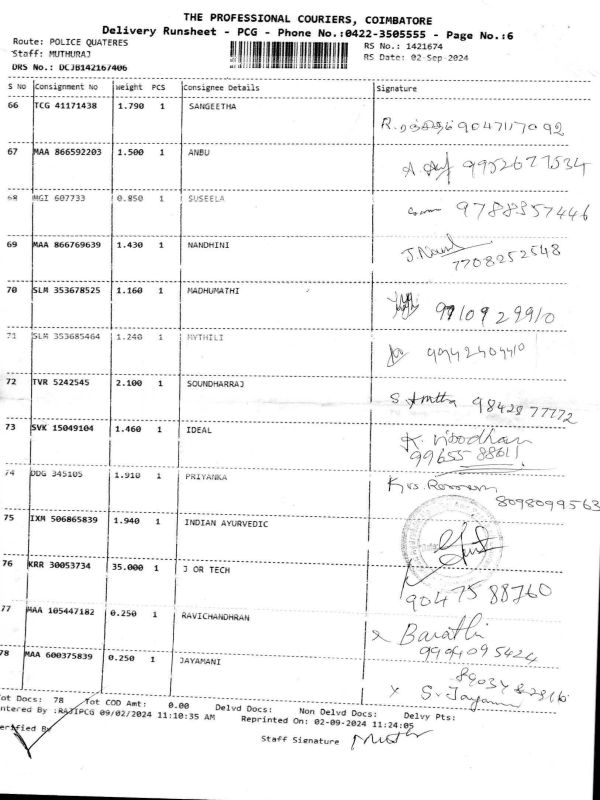 THE PROFESSIONAL COURIERS, COIMBATORE
Delivery Runsheet - PCG - Phone No.:0422-3505555 - Page No.:6
Route: POLICE QUATERES
Staff: MUTHURAJ
RS No.: 1421674
RS Date: 02-Sep-2024
DRS No.: DCJB142167406
S No Consignment No Weight PCS Consignee Details Signature
66 TCG 41171438 1.790 1 SANGEETHA
R. 9047117092
67 MAA 866592203 1.500 1 ANBU
9952677534
68 MGI 607733 0.850 1 SUSEELA
9788357446
69 MAA 866769639 1.430 1 NANDHINI
7708252548
70 SLM 353678525 1.160 1 MADHUMATHI
9710929910
71 SLM 353685464 1.240 1 MYTHILI
9994240440
72 TVR 5242545 2.100 1 SOUNDHARRAJ
S. 9842877772
73 SVK 15049104 1.460 1 IDEAL
K.
99655 88611
74 DDG 345105 1.910 1 PRIYANKA
8098099563
75 IXM 506865839 1.940 1 INDIAN AYURVEDIC
76 KRR 30053734 35.000 1 J OR TECH
90475 88760
77 MAA 105447182 0.250 1 RAVICHANDHRAN
x Barathi
9994095424
78 MAA 600375839 0.250 1 JAYAMANI
x S. Jayamani
Tot Docs: 78 Tot COD Amt: 0.00 Delvd Docs: Non Delvd Docs: Delvy Pts:
Entered By :RAJIPCG 09/02/2024 11:10:35 AM Reprinted On: 02-09-2024 11:24:05
Verified By Staff Signature